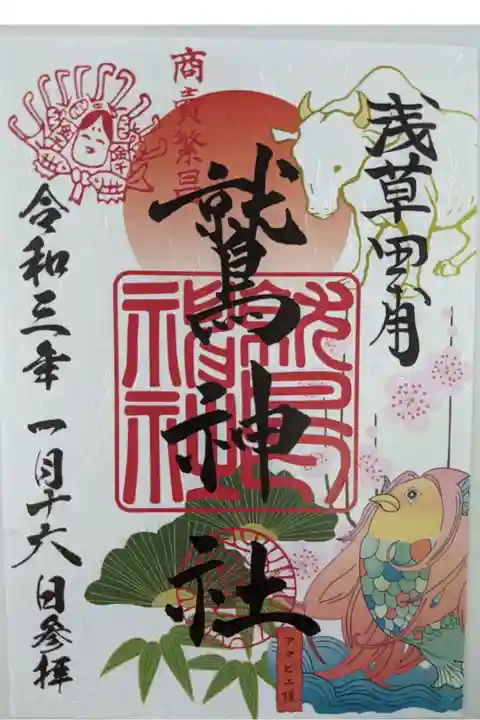 浅草田甫
商売繁昌
鷲神社
鷲神社
令和三年 一月十六日参拝
アマビエ様